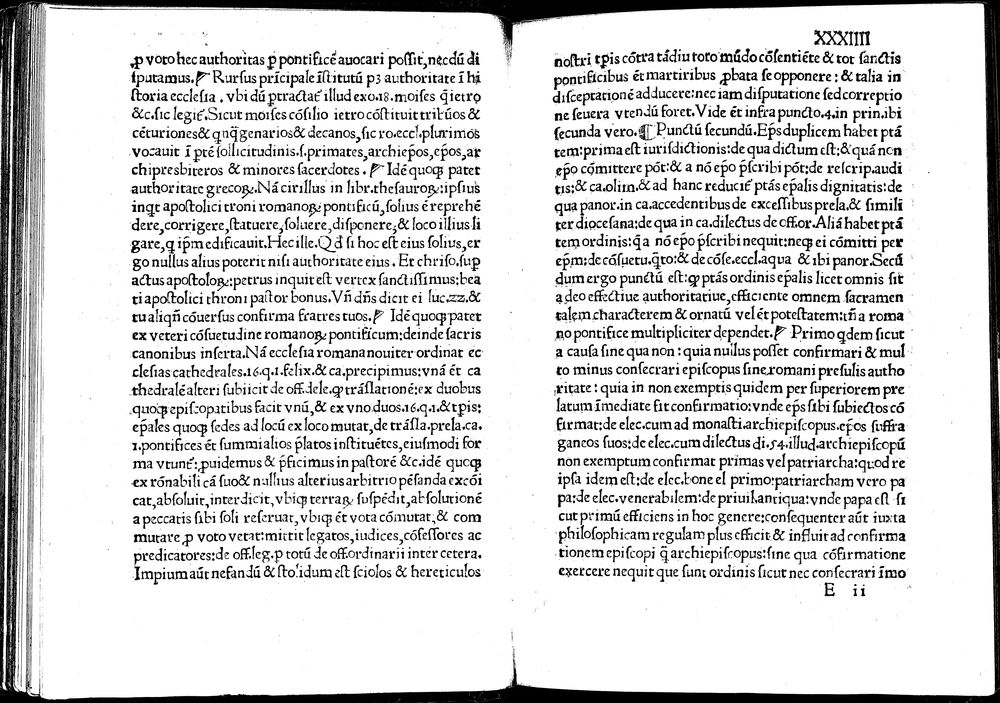 ꝓ voto hec authoritas ꝑ pontificē auocari possit, necdū di
sputamus. Rursus prīcipale īstitutū pꝫ authoritate ī hi
storia ecclesia. vbi dū ꝑtractat᷑ illud exo.18. moises q̄ ietro
&c. sic legit᷑. Sicut moises cōsilio ietro cōstituit tribūos &
cēturiones & qnq̄genarios & decanos, sic ro. eccl. plurimos
vocauit ī ptē sollicitudinis. s. primates, archiepos, epos, ar
chipresbiteros & minores sacerdotes. Idē quoqꝫ patet
authoritate grecoꝝ. Nā cirillus in libr. thesauroꝝ: ipsius
inqt apostolici troni romanoꝝ pontificū, solius ē reprehē
dere, corrigere, statuere, soluere, disponere, & loco illius li
gare, q ipm edificauit. Hec ille. Qd si hoc est eius solius, er
go nullus alius poterit nisi authoritate eius. Et chriso. sup
actus apostoloꝝ: petrus inquit est vertex sanctissimus: bea
ti apostolici throni pastor bonus. Vn̄ dn̄s dicit ei luc. 22. &
tu aliqn̄ cōuersus confirma fratres tuos. Idē quoqꝫ patet
ex veteri cōsuetudine romanoꝝ pontificum: deinde sacris
canonibus inserta. Nā ecclesia romana nouiter ordinat ec
clesias cathedrales. 16. q. 1. felix. & ca. precipimus: vnā ēt ca
thedralē alteri subiicit de off. dele. ꝙ trāslationē: ex duobus
quoqꝫ episcopatibus facit vnū, & ex vno duos. 16. q. 1. & tpis:
epales quoqꝫ sedes ad locū ex loco mutat, de trāsla. prela. ca.
1. pontifices ēt summi alios platos instituētes, eiusmodi for
ma vtunt᷑: ꝓuidemus & pficimus in pastorē &c. idē quoqꝫ
ex rōnabili cā suo & nullius alterius arbitrio pēsanda excōi
cat, absoluit, interdicit, vbiqꝫ terraꝝ suspēdit, absolutionē
a peccatis sibi soli reseruat, vbiqꝫ ēt vota cōmutat, & com
mutare ꝓ voto vetat: mittit legatos, iudices, cōfessores ac
predicatores: de off. leg. ꝑ totū de off. ordinarii inter cetera.
Impium aūt nefandū & stolidum est sciolos & hereticulos
XXXIIII
nostri tpis cōtra tādiu toto mūdo cōsentiēte & tot sanctis
pontificibus ēt martiribus ꝓbata se opponere: & talia in
disceptationē adducere: nec iam disputatione sed correptio
ne seuera vtendū foret. Vide ēt infra puncto. 4. in prin. ibi
secunda vero. ¶ Punctū secundū. Eps duplicem habet ptā
tem: prima est iurisdictionis: de qua dictum est: & quā non
epo cōmittere pōt: & a nō epo pscribi pōt: de rescrip. audi
tis: & ca. olim. & ad hanc reducit᷑ ptās epalis dignitatis: de
qua panor. in ca. accedentibus de excessibus prela. & simili
ter diocesana: de qua in ca. dilectus de off. or. Aliā habet ptā
tem ordinis: q̄ a nō epo pscribi nequit: neqꝫ ei cōmitti per
epm: de cōsuetu. q̄to: & de cōse. eccl. aqua & ibi panor. Secū
dum ergo punctū est: ꝙ ptās ordinis epalis licet omnis sit
a deo effectiue authoritatiue, efficiente omnem sacramen
talem characterem & ornatū vel ēt potestatem: tn̄ a roma
no pontifice multipliciter dependet. Primo qdem sicut
a causa sine qua non: quia nullus posset confirmari & mul
to minus consecrari episcopus sine romani presulis autho
ritate: quia in non exemptis quidem per superiorem pre
latum īmediate fit confirmatio: vnde eps sibi subiectos cō
firmat: de elec. cum ad monasti. archiepiscopus. epos suffra
ganeos suos: de elec. cum dilectus di. 54. illud. archiepiscopū
non exemptum confirmat primas vel patriarcha: quod re
ipsa idem est: de elec. bone el primo: patriarcham vero pa
pa: de elec. venerabilem: de priuil. antiqua: vnde papa est si
cut primū efficiens in hoc genere: consequenter aūt iuxta
philosophicam regulam plus efficit & influit ad confirma
tionem episcopi q̄ archiepiscopus: sine qua cōfirmatione
exercere nequit que sunt ordinis sicut nec consecrari īmo
E ii